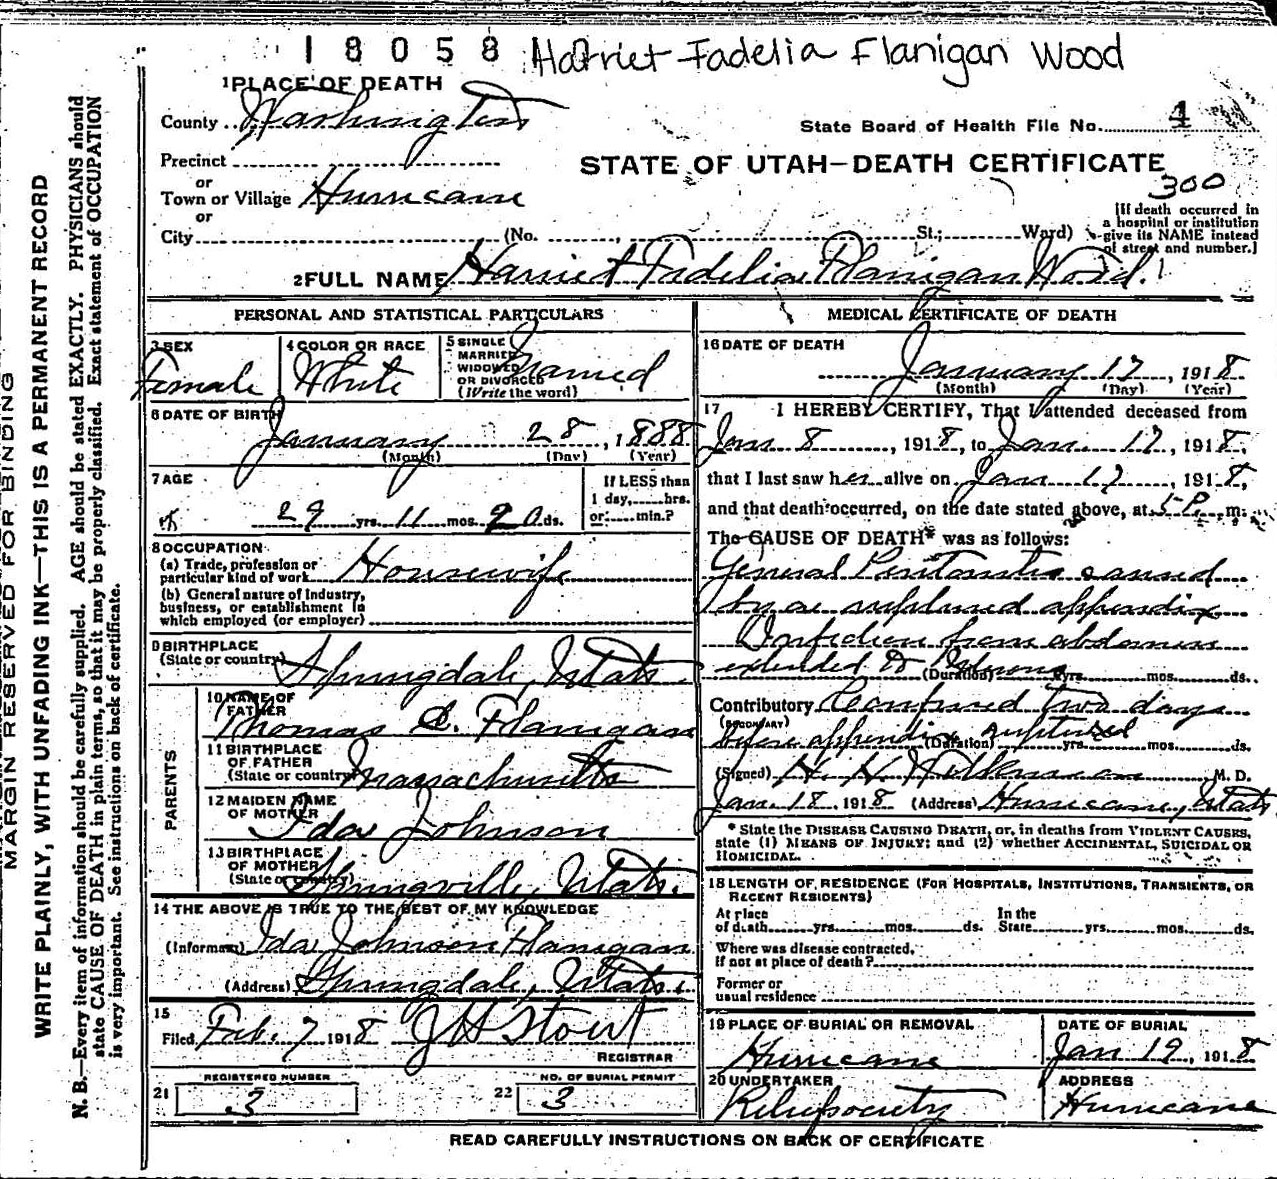 18058 Harriet Fadelia Flanigan Wood
1 PLACE OF DEATH
County Washington
State Board of Health File No. 4
Precinct
STATE OF UTAH—DEATH CERTIFICATE
or
300
Town or Village Hurricane
or
City (No. St.; Ward)
[If death occurred in
a hospital or institution
give its NAME instead
of street and number.]
2 FULL NAME Harriet Fadelia Flanigan Wood.
PERSONAL AND STATISTICAL PARTICULARS
3 SEX
Female
4 COLOR OR RACE
White
5 SINGLE
MARRIED
WIDOWED
OR DIVORCED
(Write the word)
Married
6 DATE OF BIRTH
January 28, 1888
(Month) (Day) (Year)
7 AGE
29 yrs. 11 mos. 20 ds.
If LESS than
1 day, hrs.
or min.?
8 OCCUPATION
(a) Trade, profession or
particular kind of work Housewife
(b) General nature of Industry,
business, or establishment in
which employed (or employer)
9 BIRTHPLACE
(State or country) Springdale, Utah.
PARENTS
10 NAME OF
FATHER
Thomas Flanigan
11 BIRTHPLACE
OF FATHER
(State or country) Massachusetts
12 MAIDEN NAME
OF MOTHER
Ida Johnson
13 BIRTHPLACE
OF MOTHER
(State or country)
Springville, Utah.
14 THE ABOVE IS TRUE TO THE BEST OF MY KNOWLEDGE
(Informant) Ida Johnson Flanigan
(Address) Springdale, Utah.
15
Filed Feb. 7 1918 J H Stout
REGISTRAR
REGISTERED NUMBER
21 3
NO. OF BURIAL PERMIT
22 3
MEDICAL CERTIFICATE OF DEATH
16 DATE OF DEATH
January 17, 1918
(Month) (Day) (Year)
17 I HEREBY CERTIFY, That I attended deceased from
Jan 8, 1918, to Jan. 17, 1918,
that I last saw her alive on Jan 17, 1918,
and that death occurred, on the date stated above, at 5 P. m.
The CAUSE OF DEATH* was as follows:
General Peritonitis caused
by a ruptured appendix
Infection from abdomen
extended to
(Duration) yrs. mos. ds.
Contributory Confined two days
(SECONDARY)
before appendix ruptured
(Duration) yrs. mos. ds.
(Signed) M. D.
Jan. 18, 1918 (Address) Hurricane, Utah
* State the DISEASE CAUSING DEATH, or, in deaths from VIOLENT CAUSES,
state (1) MEANS OF INJURY; and (2) whether ACCIDENTAL, SUICIDAL OR
HOMICIDAL.
18 LENGTH OF RESIDENCE (FOR HOSPITALS, INSTITUTIONS, TRANSIENTS, OR
RECENT RESIDENTS)
At place
of death yrs. mos. ds.
In the
State yrs. mos. ds.
Where was disease contracted,
If not at place of death?
Former or
usual residence
19 PLACE OF BURIAL OR REMOVAL
Hurricane
DATE OF BURIAL
Jan 19, 1918
20 UNDERTAKER
Relief society
ADDRESS
Hurricane
READ CAREFULLY INSTRUCTIONS ON BACK OF CERTIFICATE
MARGIN RESERVED FOR BINDING
WRITE PLAINLY, WITH UNFADING INK—THIS IS A PERMANENT RECORD
N. B.—Every item of information should be carefully supplied. AGE should be stated EXACTLY. PHYSICIANS should
state CAUSE OF DEATH in plain terms, so that it may be properly classified. Exact statement of OCCUPATION
is very important. See instructions on back of certificate.